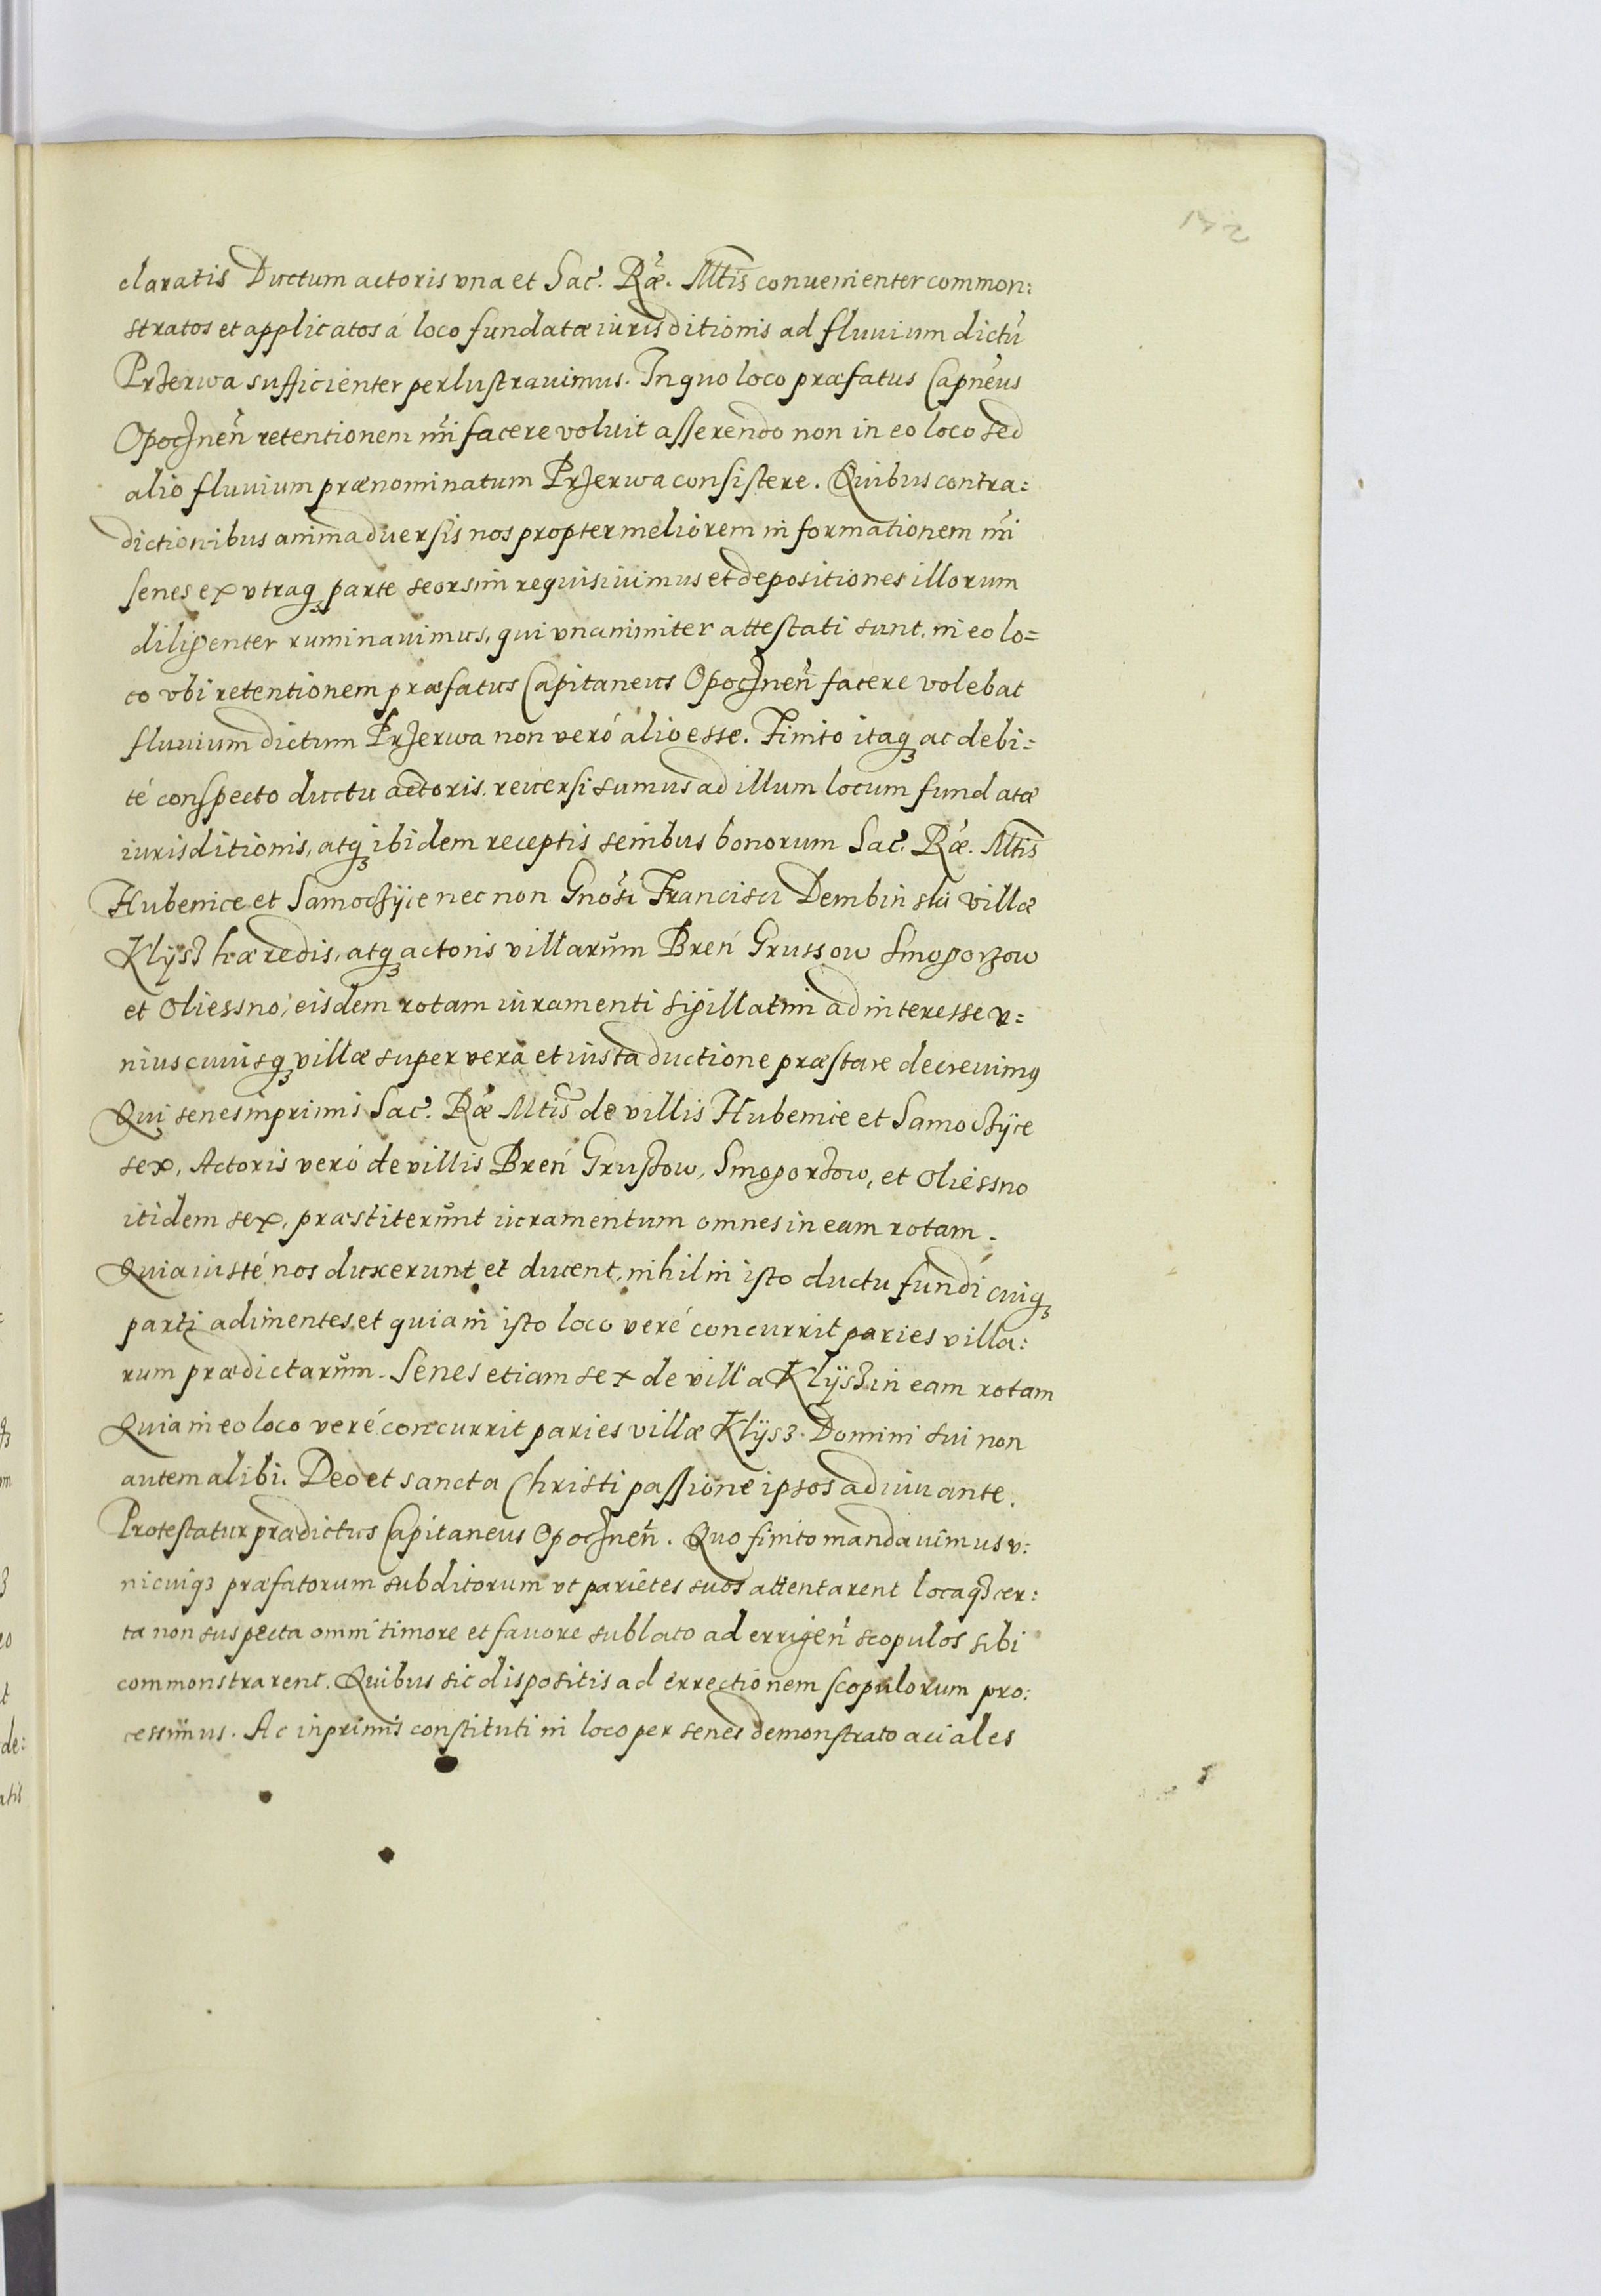 claratis Ductum actoris vna et Sac. Ræ. Mtis conuenienter common:
stratos et applicatos á loco fundatæ iurisditionis ad fluuium dictũ
Przerwa sufficienter perlustrauimus. In quo loco præfatus Capnẽus
Opocznẽn retentionem facere voluit asserendo non in eo loco sed
alio fluuium prænominatum Przerwa consistere. Quibus contra:
dictionibus animaduersis nos propter meliorem informationem
senes ex vtraq3 parte seorsim requisiuimus et depositiones illorum
diligenter ruminauimus, qui vnanimiter attestati sunt, in eo lo=
co vbi retentionem præfatus Capitaneus Opocznẽn facere volebat
fluuium dictum Przerwa non veró alio esse. Finito itaq3 ac debi:
té conspecto ductu actoris, reuersi sumus ad illum locum fundatæ
iurisditionis, atq3 ibidem receptis senibus bonorum Sac. Ræ. Mtis
Hubenice et Samoczÿce nec non Gnõsi Francisci Dembinski villæ
Klÿs3 hæredis, atq3 actoris villarum Breń Grussow Smogorzow
et Oliessno, eisdem rotam iuramenti sigillatim ad interesse v=
niuscuiusq3 villæ super vera et iusta ductione præstare decreuimus
Qui senes inprimis Sac. Ræ Mtis de villis Hubenice et Samoczÿce
sex, Actoris veró de villis Breń Gruszow, Smogorzow, et Oliessno
itidem sex, præstiterunt iuramentum omnes in eam rotam.
Quia iusté nos duxerunt et ducent, nihil in isto ductu fundi cuiq3
parti adimentes et quia in isto loco veré concurrit paries villa:
rum prædictarum. Senes etiam sex de villa Klÿs3 in eam rotam
Quia in eo loco veré concurrit paries villæ Klÿs3. Domini sui non
autem alibi. Deo et sancta Christi passione ipsos adiuuante.
Protestatur prædictus Capitaneus Opocznẽn. Quo finito mandauimus v:
nicuiq3 præfatorum subditorum vt parietes suos attentarent locaq3 cer:
ta non suspecta omni timore et fauore sublato ad errigẽn scopulos sibi
commonstrarent. Quibus sic dispositis ad errectionem scopulorum pro:
cessimus. Ac inprimis constituti in loco per senes demonstrato aciales